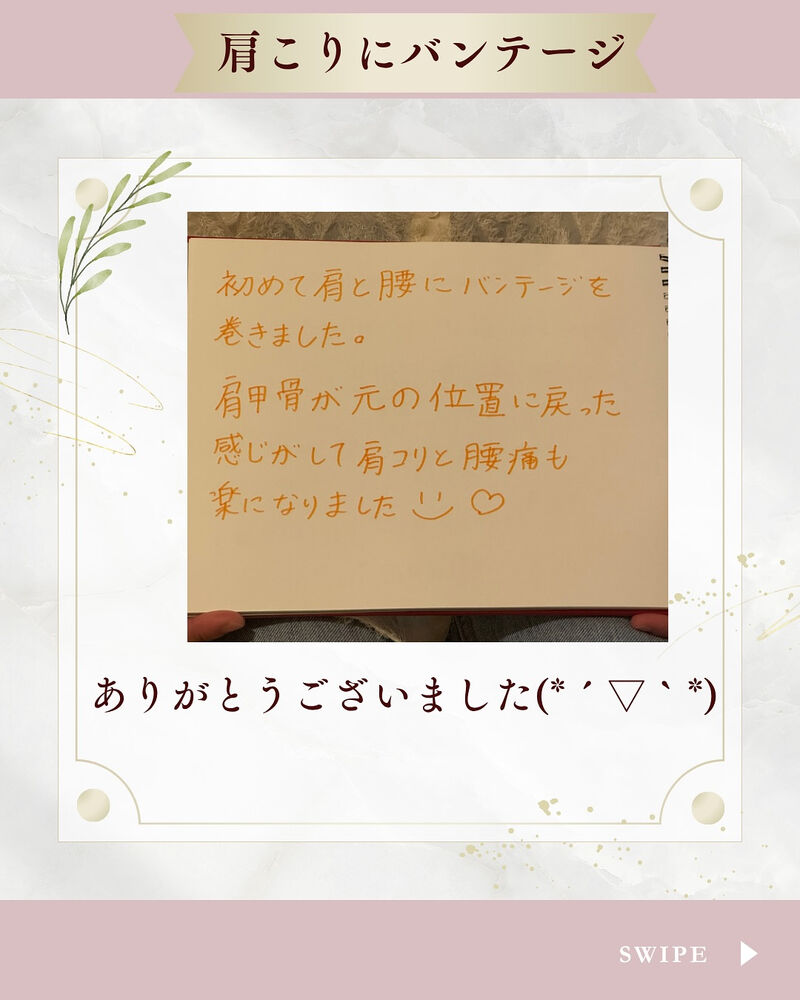 肩こりにバンテージ
初めて肩と腰にバンテージを
巻きました。
肩甲骨が元の位置に戻った
感じがして肩コリと腰痛も
楽になりました
ありがとうございました(*´▽`*)
SWIPE